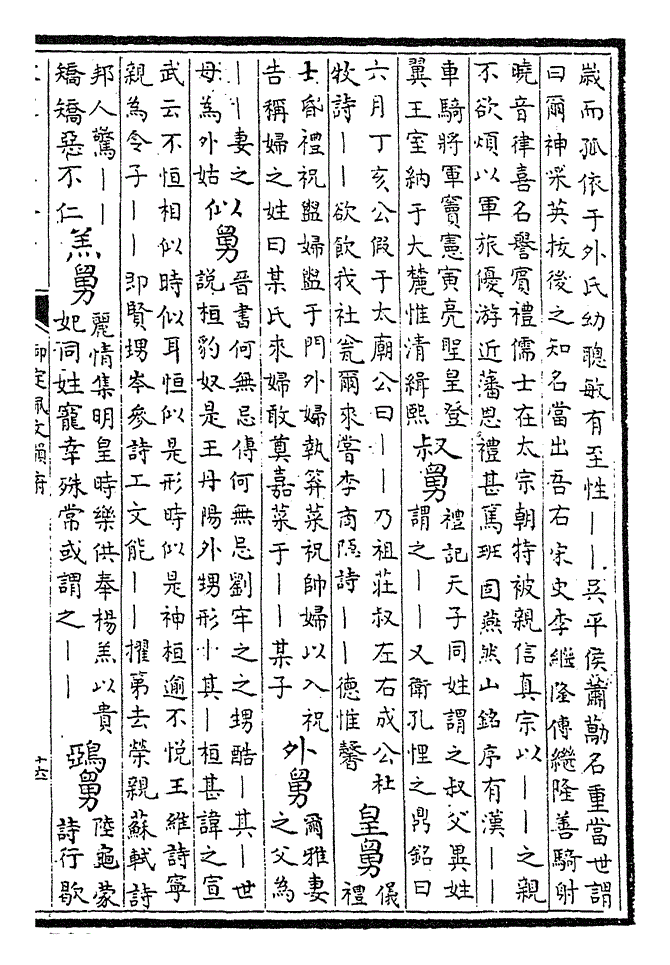 歲而孤依于外氏幼聰敏有至性丨丨吳平侯蕭勱名重當世謂
曰爾神采英拔後之知名當出吾右宋史李繼隆傳繼隆善騎射
曉音律喜名譽賓禮儒士在太宗朝特被親信真宗以丨丨之親
不欲煩以軍旅優游近藩恩禮甚篤班固燕然山銘序有漢丨丨
車騎將軍竇憲寅亮聖皇登
翼王室納于大麓惟清緝熙
叔舅
禮記天子同姓謂之叔父異姓
謂之丨丨又衛孔悝之鼎銘曰
六月丁亥公假于太廟公曰丨丨乃祖莊叔左右成公杜
牧詩丨丨欲飲我社瓮爾來嘗李商隱詩丨丨德惟馨
皇舅
儀
禮
士昏禮祝盥婦盥于門外婦執笲菜祝帥婦以入祝
告稱婦之姓曰某氏來婦敢奠嘉菜于丨丨某子
外舅
爾雅妻
之父為
丨丨妻之
母為外姑
似舅
晉書何無忌傳何無忌劉牢之之甥酷丨其丨世
說桓豹奴是王丹陽外甥形小其丨桓甚諱之宣
武云不恒相似時似耳恒似是形時似是神桓逾不悅王維詩寧
親為令子丨丨即賢甥岑參詩工文能丨丨擢第去榮親蘇軾詩
邦人驚丨丨
矯矯惡不仁
羔舅
麗情集明皇時樂供奉楊羔以貴
妃同姓寵幸殊常或謂之丨丨
鵶舅
陸龜蒙
詩行歇
御定佩文韻府
十六